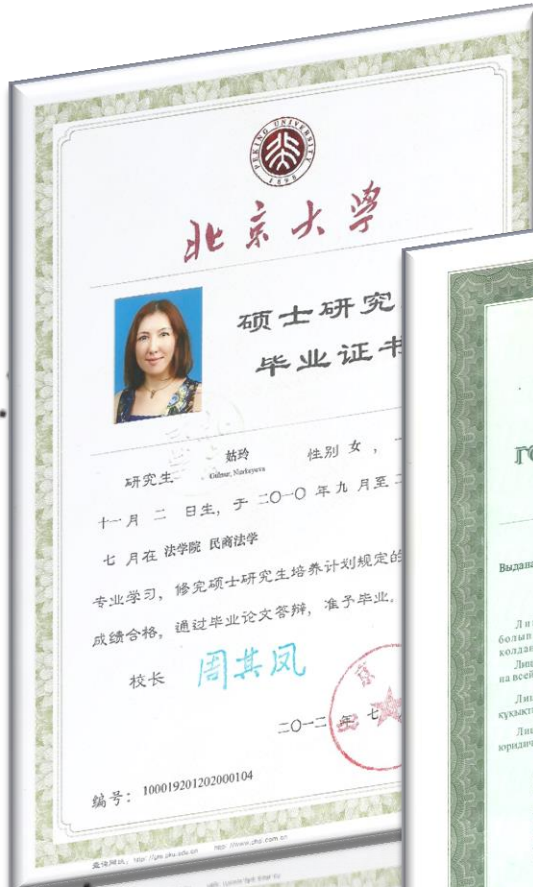 PEKING UNIVERSITY
1898
北京大学
硕士研究
毕业证书
研究生 姑玲 性别 女 ， 一
Gulnur, Nurkeyeva
十一月 二 日生，于 二〇一〇 年 九 月至 二
七 月在 法学院 民商法学
专业学习，修完硕士研究生培养计划规定的
成绩合格，通过毕业论文答辩，准予毕业。
校长 周其凤
二〇一二 年 七
编号： 100019201202000104
查询网址：
ГО
Выдана
Ли
болып
колдан
Лиц
на всей
Лиц
құқықт
Лиц
юридич